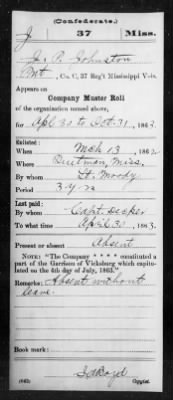 (Confederate.)
J 37 Miss.
J. P. Johnston
Pvt, Co. C, 37 Reg't Mississippi Vols.
Appears on
Company Muster Roll
of the organization named above,
for Apl 30 to Oct. 31, 1863.
Enlisted:
When Mch 13, 186
Where Quitman, Miss.
By whom Lt. Moody
Period 3 yrs
Last paid:
By whom Capt.
To what time April 30, 186
Present or absent Absent
NOTE: "The Company * * * * constituted a
part of the Garrison of Vicksburg which capitu-
lated on the 4th day of July, 1863."
Remarks: Absent without
leave.
Book mark:
(642)
Copyist.